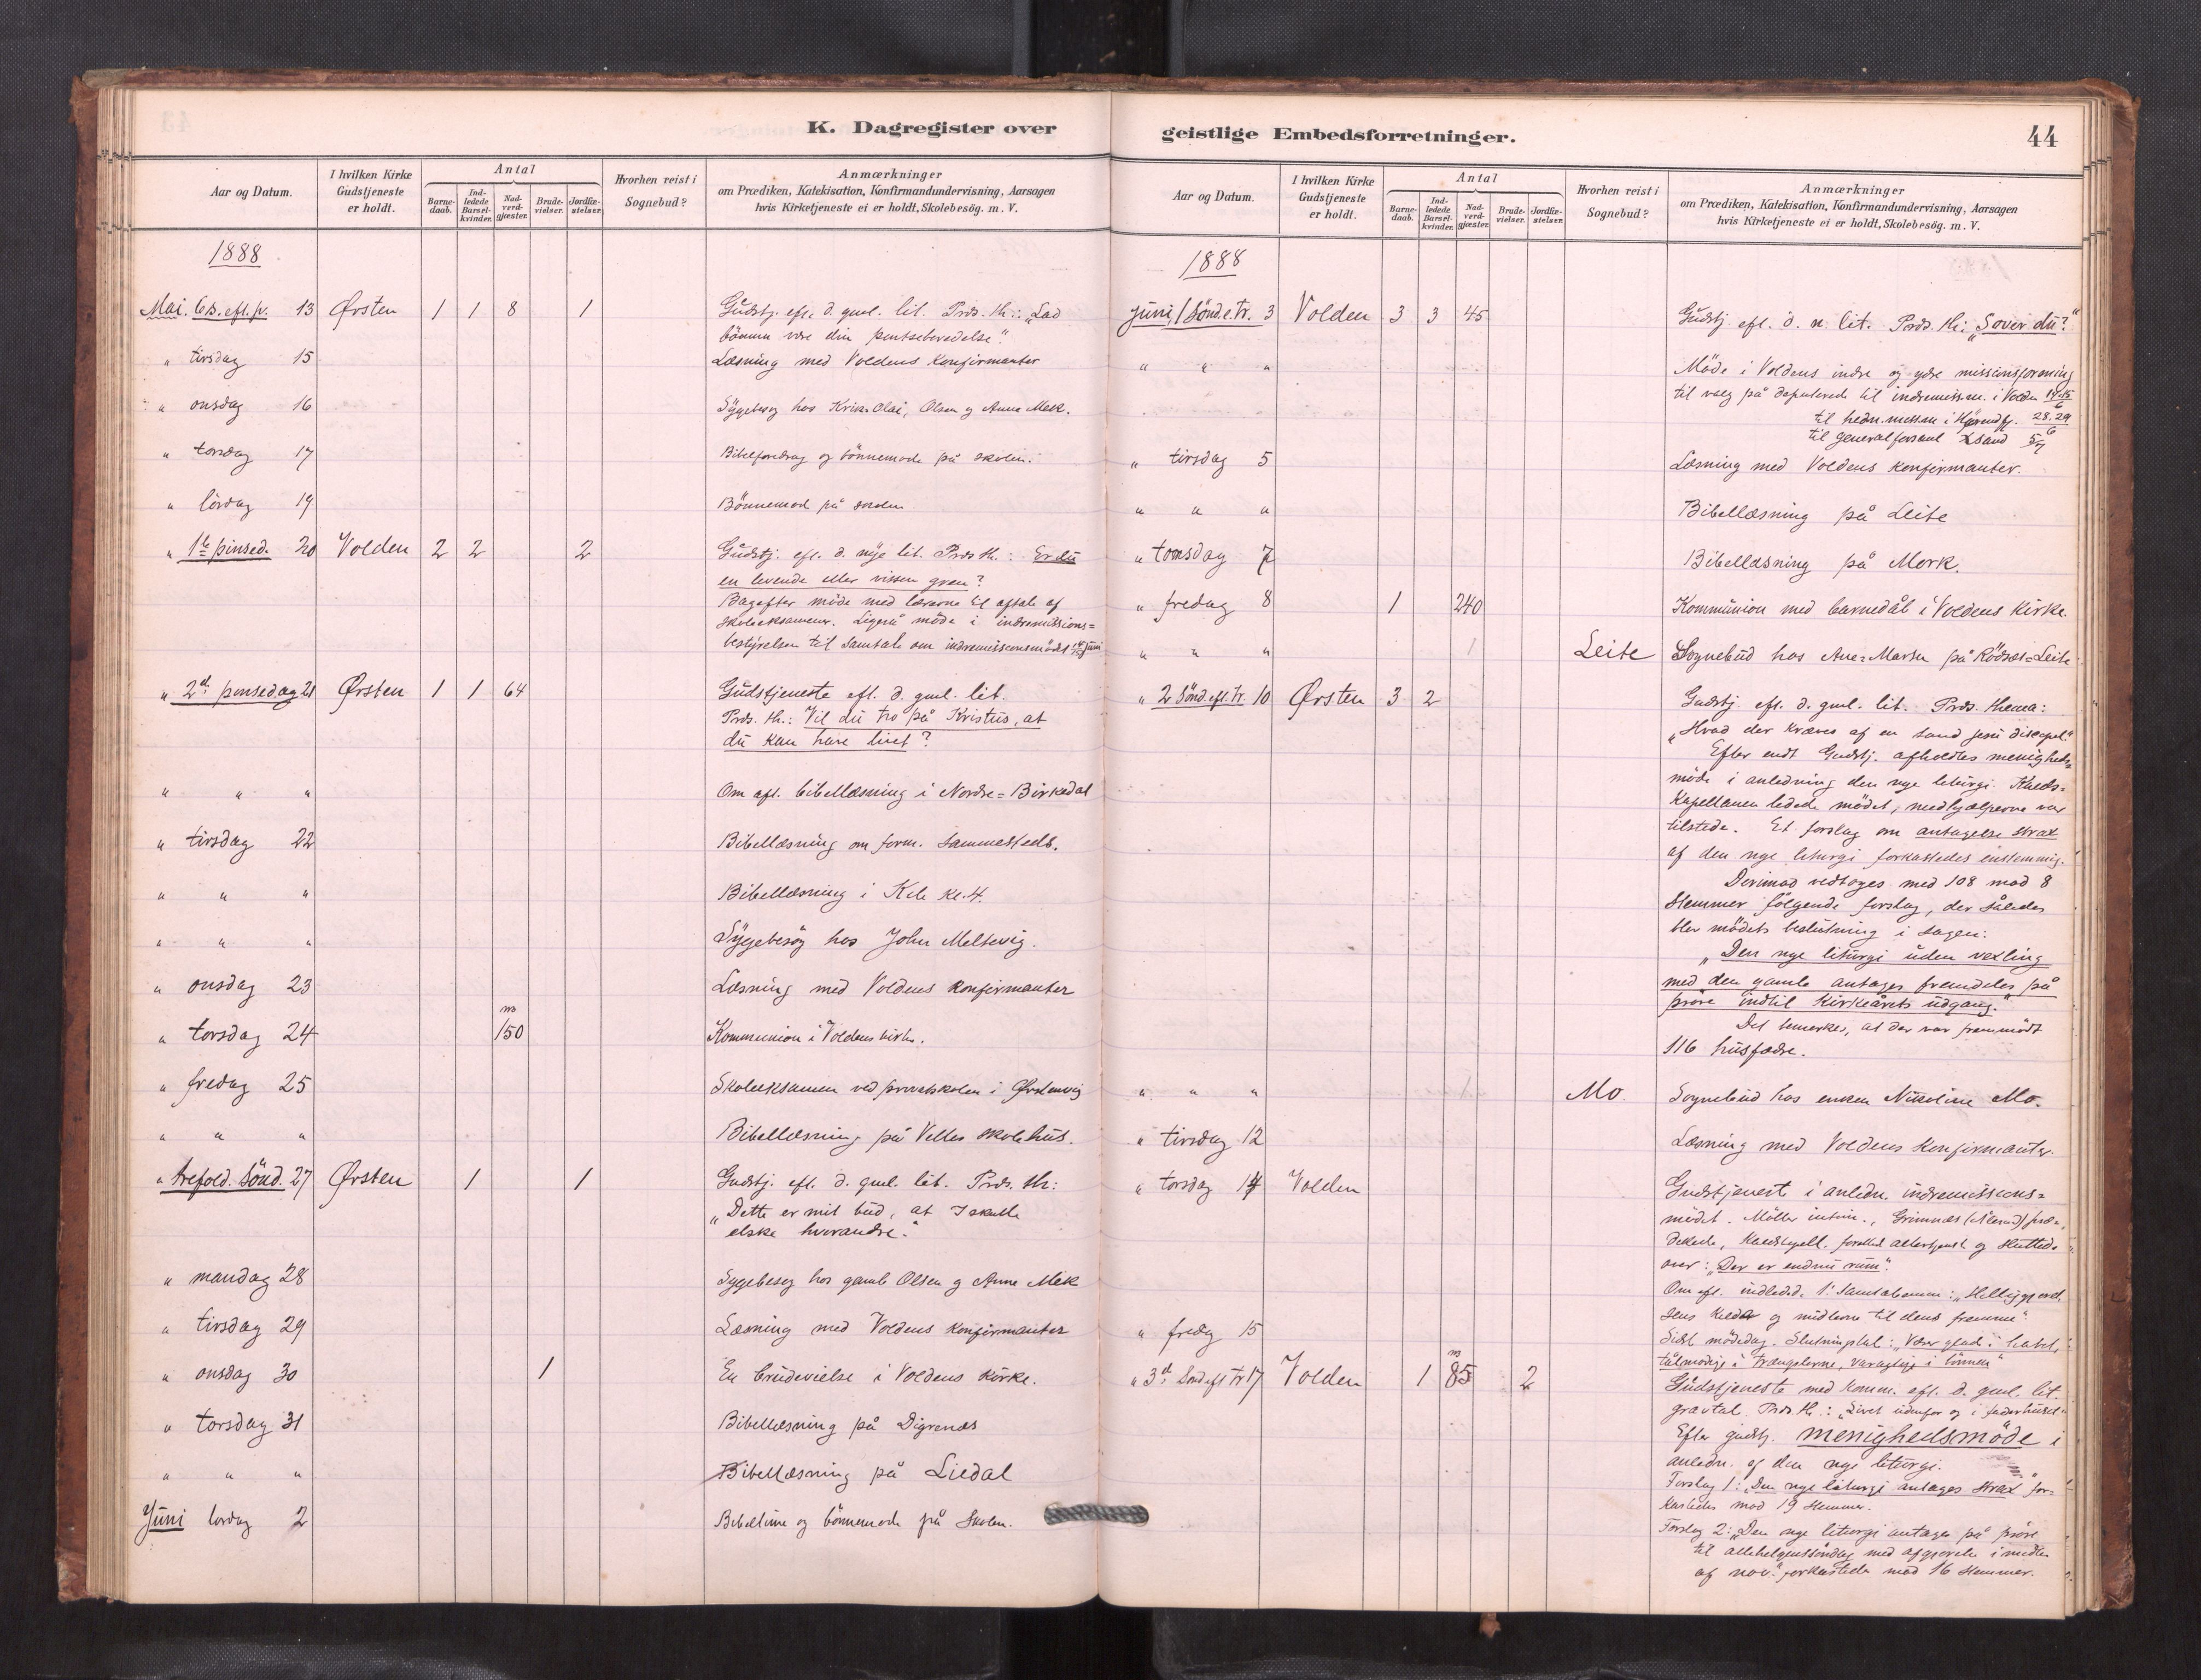 K. Dagregister over
Aar og Datum.
I hvilken Kirke Gudstjeneste er holdt.
Antal
Barne-daab.
Ind-ledede Barsel-kvinder.
Nad-verd-gjæster.
Brude-vielser.
Jordfæ-stelser.
Hvorhen reist i Sognebud?
Anmærkninger
om Prædiken, Katekisation, Konfirmandundervisning, Aarsagen
hvis Kirketjeneste ei er holdt, Skolebesög. m. V.
1888
Mai. 6 s. eft. p. 13 Ørsten 1 1 8 1 Gudstj. eft. d. gml. lit. Præd. th.: "Lad
bönnen være din
" tirsdag 15 Læsning med Voldens Konfirmanter
" onsdag 16 Sygebesøg hos Olai, Olsen og Anne Mek.
" torsdag 17 Bibelforedrag og bönnemøde på skolen.
" lördag 19 Bönnemøde på skolen
" 1ste pinsed. 20 Volden 2 2 2 Gudstj. eft. d. nye lit. Præd. th.: Er du
en levende eller vissen gren?
Bagefter möde med lærerne til aftale af
skoleeksamener. Ligeså möde i indremissions=
bestyrelsen til samtale om indremissionsmödet juni
" 2den pinsedag 21 Ørsten 1 1 64 Gudstjeneste eft. d. gml. lit.
Præd. th.: Vil du tro på Kristus, at
du kan have livet?
" " " Om eft. bibellæsning i Nordre=Birkedal
" tirsdag 22 Bibellæsning om form. sammesteds.
" " " Bibellæsning i Kl. 4.
" " " Sygebesøg hos John Meltevig.
" onsdag 23 Læsning med Voldens konfirmanter
" torsdag 24 150 Kommunion i Voldens kirke.
" fredag 25 Skoleeksamen ved privatskolen i Ørstenvig
" " " Bibellæsning på Velles skolehus.
" trefold. Sönd. 27 Ørsten 1 1 Gudstj. eft. d. gml. lit. Præd. th:
"Dette er mit bud, at I skulle
elske hverandre."
" mandag 28 Sygebesøg hos gamle Olsen og Anne Mek
" tirsdag 29 Læsning med Voldens konfirmanter
" onsdag 30 1 En brudevielse i Voldens kirke.
" torsdag 31 Bibellæsning på Digrenæs
" " " Bibellæsning på Liedal
Juni lördag 2 Bibeltime og bönnemøde på Skolen.
geistlige Embedsforretninger.
44
Aar og Datum.
I hvilken Kirke Gudstjeneste er holdt.
Antal
Barne-daab.
Ind-ledede Barsel-kvinder.
Nad-verd-gjæster.
Brude-vielser.
Jordfæ-stelser.
Hvorhen reist i Sognebud?
Anmærkninger
om Prædiken, Katekisation, Konfirmandundervisning, Aarsagen
hvis Kirketjeneste ei er holdt, Skolebesög. m. V.
1888
Juni, 1 Sönd. e. Tr. 3 Volden 3 3 45 Gudstj. eft. d. n. lit. Præd. th: "Sover du?"
" " " Möde i Voldens indre og ydre missionsforening
til valg på deputerede til indremissm. i Volden 14-15/6
til hedn. missm. i 28-29/6
til generalforsaml Xsand
" tirsdag 5 Læsning med Voldens Konfirmanter.
" " " Bibellæsning på Leite
" torsdag 7 Bibellæsning på Mork.
" fredag 8 1 240 Kommunion med barnedåb i Voldens Kirke.
" " " 1 Leite Sognebud hos Ane=Marta på Rödsæt=Leite
" 2 Sönd. eft. Tr. 10 Ørsten 3 2 Gudstj. eft. d. gml. lit. Præd. thema:
"Hvad der kræves af en sand Jesu discipel."
Efter endt Gudstj. afholdtes menigheds=
möde i anledning den nye liturgi. Kalds=
Kapellanen ledede mödet, medhjælperne var
tilstede. Et forslag om antagelse strax
af den nye liturgi forkastedes enstemmig.
Derimod vedtoges med 108 mod 8
stemmer fölgende forslag, der således
blev mödets beslutning i sagen:
"Den nye liturgi uden vexling
med den gamle antages fremdeles på
pröve indtil Kirkeårets udgang."
Det bemerkes, at der var fremmödt
116 husfædre.
" " " 1 Mo Sognebud hos enken Nikoline Mo.
" tirsdag 12 Læsning med Voldens Konfirmanter.
" torsdag 14 Volden Gudstjenest i anledn. indremissions=
mödet. Möller intim., Grimnæs (Ålesund) præ=
dikede, Kaldskapell. forettede altertjenest og sluttede
over: "Der er endnu rum".
Om eft. indledede 1ste samtaleemne: "Helliggjørel
sens og midlerne til dens fremme"
" fredag 15 Sidst mödedag. Slutningstal: "Vær glad i håbet,
tålmodige i trængslerne, varagtige i bönnen"
" 3d Sönd eft Tr 17 Volden 1 85 2 Gudstjeneste med Komm. eft. d. gml. lit.
gravtal. Præd. th.: "Livet udenfor og i faderhuset"
Efter gudstj. menighedsmöde i
anledn. af den nye liturgi.
Forslag 1: "Den nye liturgi antages strax" for=
kastedes mod 19 stemmer.
Forslag 2: "Den nye liturgi antages på pröve
til allehelgenssöndag med afgjørelse i midten
af nov." forkastedes mod 16 stemmer.